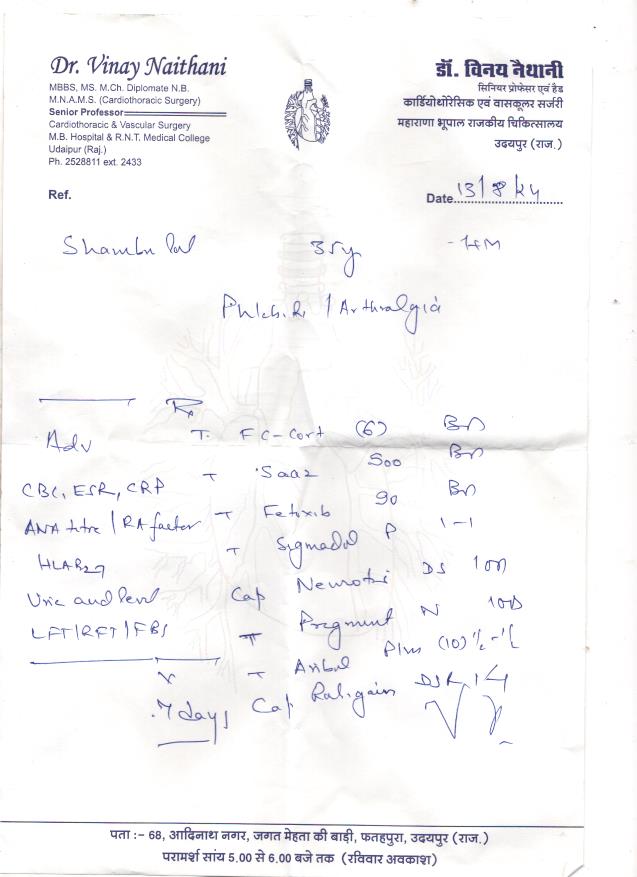 Dr. Vinay Naithani
MBBS, MS. M.Ch. Diplomate N.B.
M.N.A.M.S. (Cardiothoracic Surgery)
Senior Professor
Cardiothoracic & Vascular Surgery
M.B. Hospital & R.N.T. Medical College
Udaipur (Raj.)
Ph. 2528811 ext. 2433
डॉ. विनय नैथानी
सिनियर प्रोफेसर एवं हैड
कार्डियोथोरेसिक एवं वासकूलर सर्जरी
महाराणा भूपाल राजकीय चिकित्सालय
उदयपुर (राज.)
Ref.
Date 13/8/24
Shambu lal 35y
/ Arthralgia
Rx
Adv
CBC, ESR, CRP
ANA titre / RA factor
HLAB27
Uric acid level
LFT/RFT/FBS
7 days
T. FC-Cort (6) BD
T Saaz 500 BD
T 90 BD
T P 1-1
Cap DS 1 OD
T N 1 OD
T Plus (10) ½-½
Cap DSR 14
पता :- 68, आदिनाथ नगर, जगत मेहता की बाड़ी, फतहपुरा, उदयपुर (राज.)
परामर्श सांय 5.00 से 6.00 बजे तक (रविवार अवकाश)